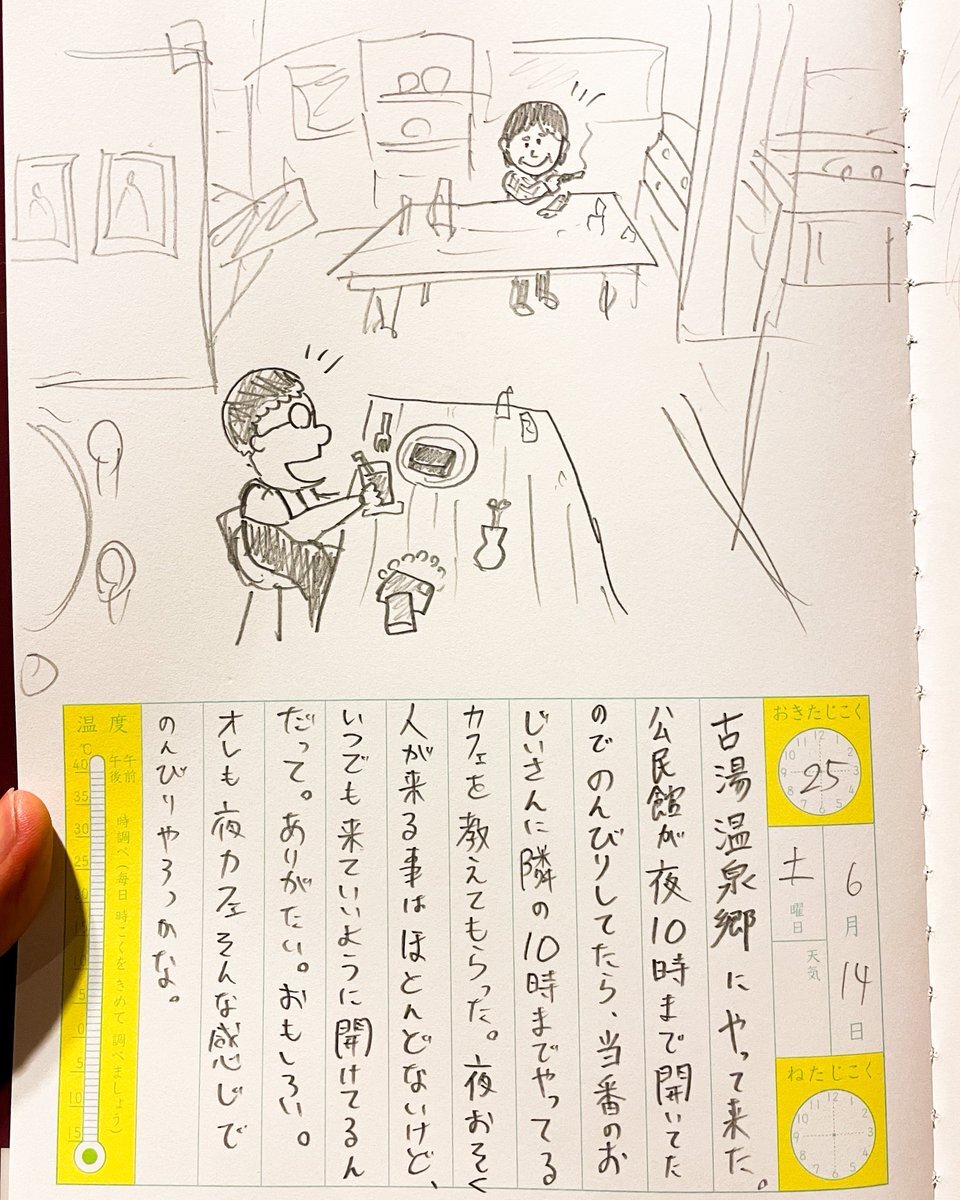 おきたじこく
25
6月14日
土曜日
天気
ねたじこく
古湯温泉郷にやって来た。
公民館が夜10時まで開いてた
のでのんびりしてたら、当番のお
じいさんに隣の10時までやってる
カフェを教えてもらった。夜おそく
人が来る事はほとんどないけど、
いつでも来ていいように開けてるん
だって。ありがたい。おもしろい。
オレも夜カフェそんな感じで
のんびりやろっかな。
温度
℃
午前
午後
時調べ(毎日 時こくをきめて 調べましょう)
40
35
30
25
20
15
10
5
0
5
10
15